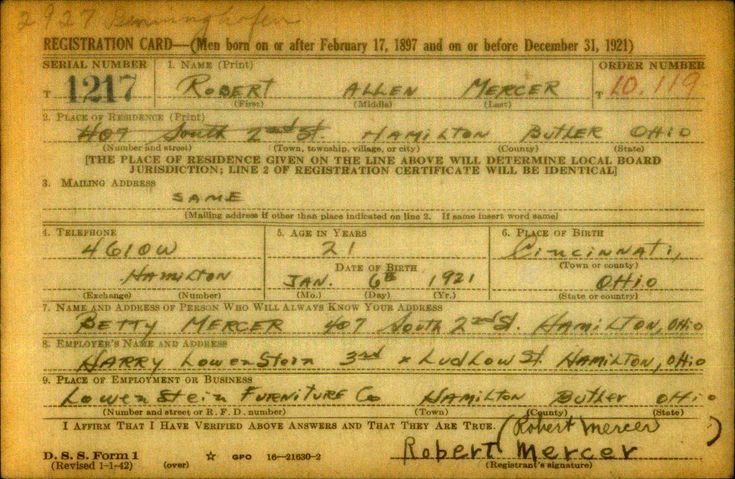 2927 Benninghofen
REGISTRATION CARD—(Men born on or after February 17, 1897 and on or before December 31, 1921)
SERIAL NUMBER 1. NAME (Print) ORDER NUMBER
T 1217 ROBERT ALLEN MERCER T 10,119
(First) (Middle) (Last)
2. PLACE OF RESIDENCE (Print)
407 South 2nd St. HAMILTON BUTLER OHIO
(Number and street) (Town, township, village, or city) (County) (State)
[THE PLACE OF RESIDENCE GIVEN ON THE LINE ABOVE WILL DETERMINE LOCAL BOARD
JURISDICTION; LINE 2 OF REGISTRATION CERTIFICATE WILL BE IDENTICAL]
3. MAILING ADDRESS
SAME
(Mailing address if other than place indicated on line 2. If same insert word same)
4. TELEPHONE 5. AGE IN YEARS 6. PLACE OF BIRTH
4610W 21 Cincinnati,
DATE OF BIRTH (Town or county)
HAMILTON JAN. 6th 1921 OHIO
(Exchange) (Number) (Mo.) (Day) (Yr.) (State or country)
7. NAME AND ADDRESS OF PERSON WHO WILL ALWAYS KNOW YOUR ADDRESS
BETTY MERCER 407 South 2nd St. HAMILTON, OHIO
8. EMPLOYER'S NAME AND ADDRESS
HARRY LowenStein 3rd x LUDLOW St. HAMILTON, OHIO
9. PLACE OF EMPLOYMENT OR BUSINESS
LowenStein FURNITURE Co HAMILTON Butler OHIO
(Number and street or R. F. D. number) (Town) (County) (State)
I AFFIRM THAT I HAVE VERIFIED ABOVE ANSWERS AND THAT THEY ARE TRUE. (Robert Mercer)
D. S. S. Form 1 Robert Mercer
(Revised 1-1-42) (over) ☆ GPO 16—21630-2 (Registrant's signature)